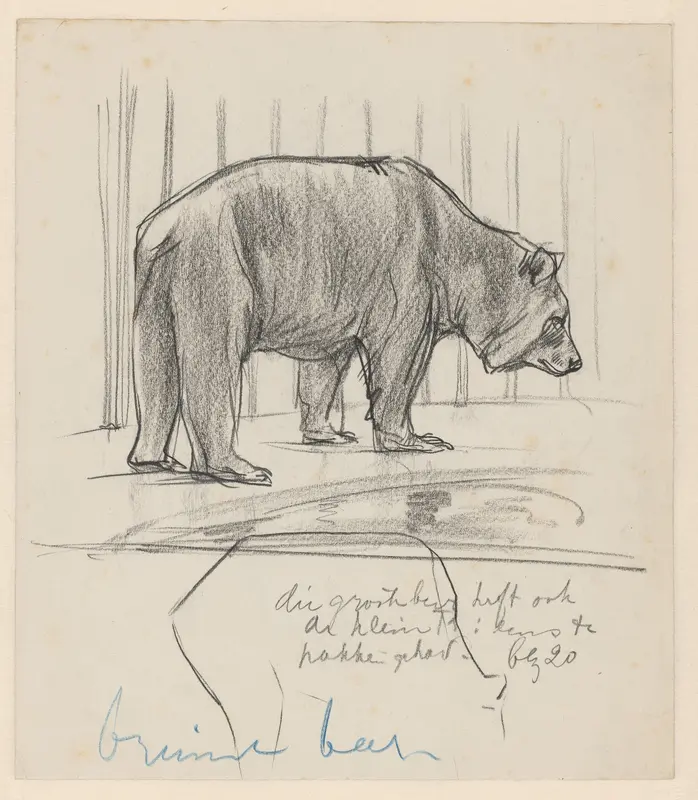 die groote beer heeft ook
de kleine : eens te
pakken gehad - blz 20
bruine beer